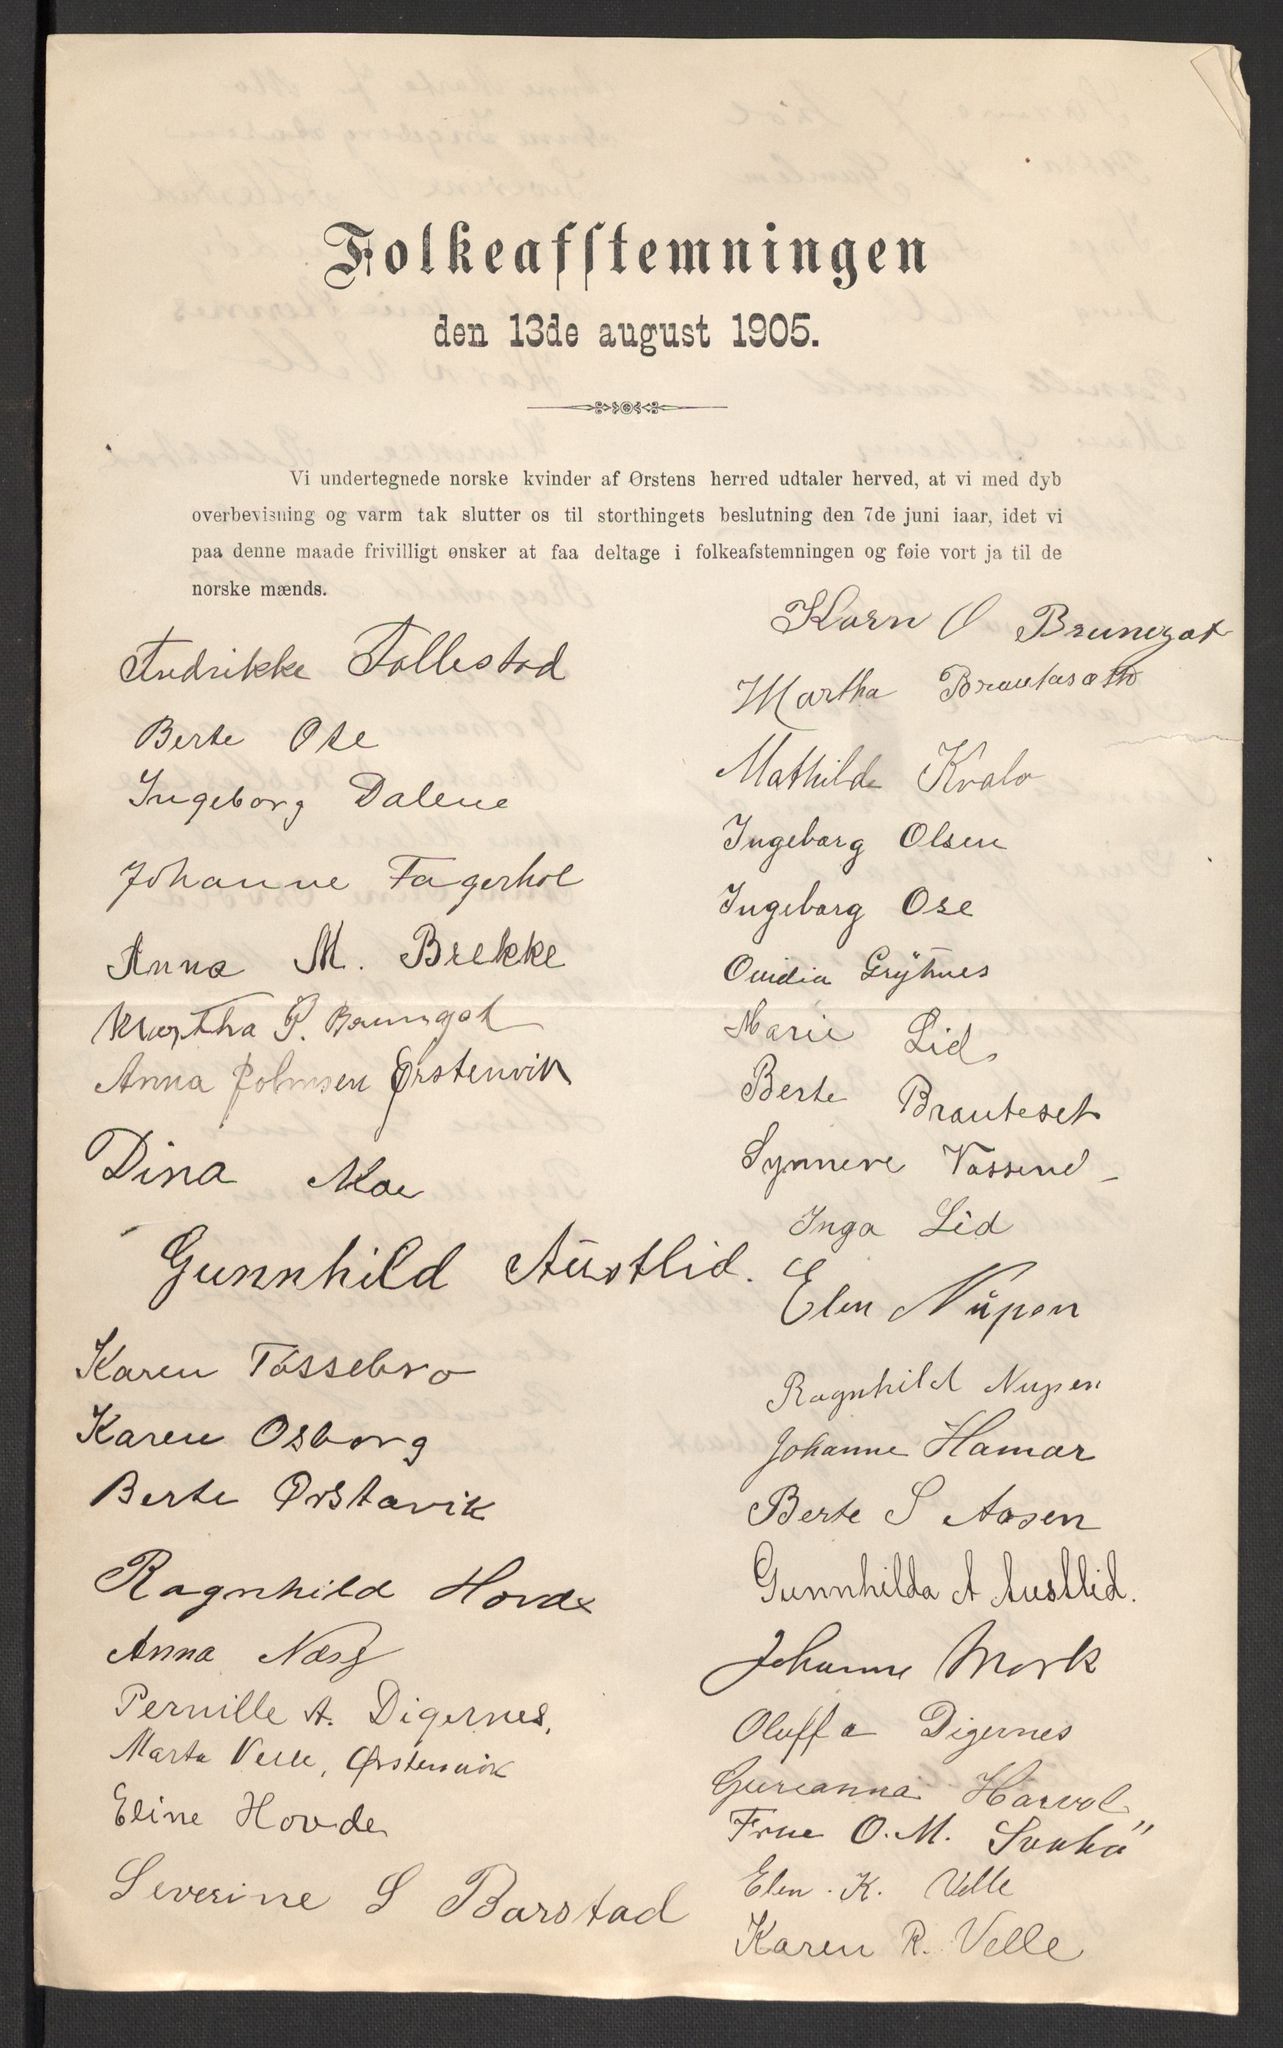 Folkeafstemningen
den 13de august 1905.
Vi undertegnede norske kvinder af Ørstens herred udtaler herved, at vi med dyb
overbevisning og varm tak slutter os til storthingets beslutning den 7de juni iaar, idet vi
paa denne maade frivilligt ønsker at faa deltage i folkeafstemningen og føie vort ja til de
norske mænds.
Fredrikke Follestad
Berte Ose
Ingeborg Dalene
Johanne Fagerhol
Anna M. Brekke
Martha P. Brungot
Anna Johnsen Ørstenvik
Dina Moe
Gunnhild Austlid.
Karen Tossebro
Karen Osborg
Berte Ørstavik
Ragnhild Hovde
Anna Næss
Pernille A. Digernes.
Marta Velle, Ørstenvik
Eline Hovde
Severine S Barstad
Karn O Brungot
Martha Brautaseth
Mathilde Kvalo
Ingeborg Olsen
Ingeborg Ose
Ovidia Grytnes
Marie Lid
Berte Brauteset
Synneve Vassend
Inga Lid
Elen Nupen
Ragnhild Nupen
Johanne Hamar
Berte S Aasen
Gunnhilda A Austlid.
Johanne Mork
Oluffa Digernes
Gurianna Harvol
Frue O. M.
Elen K. Velle
Karen R. Velle